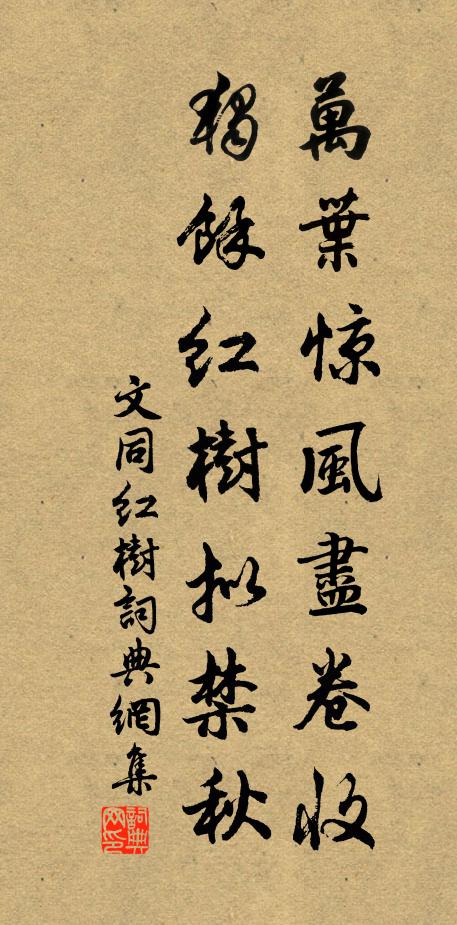 萬葉惊風盡卷收
獨餘紅樹拟禁秋
文同紅樹詞典網集
詞典网印